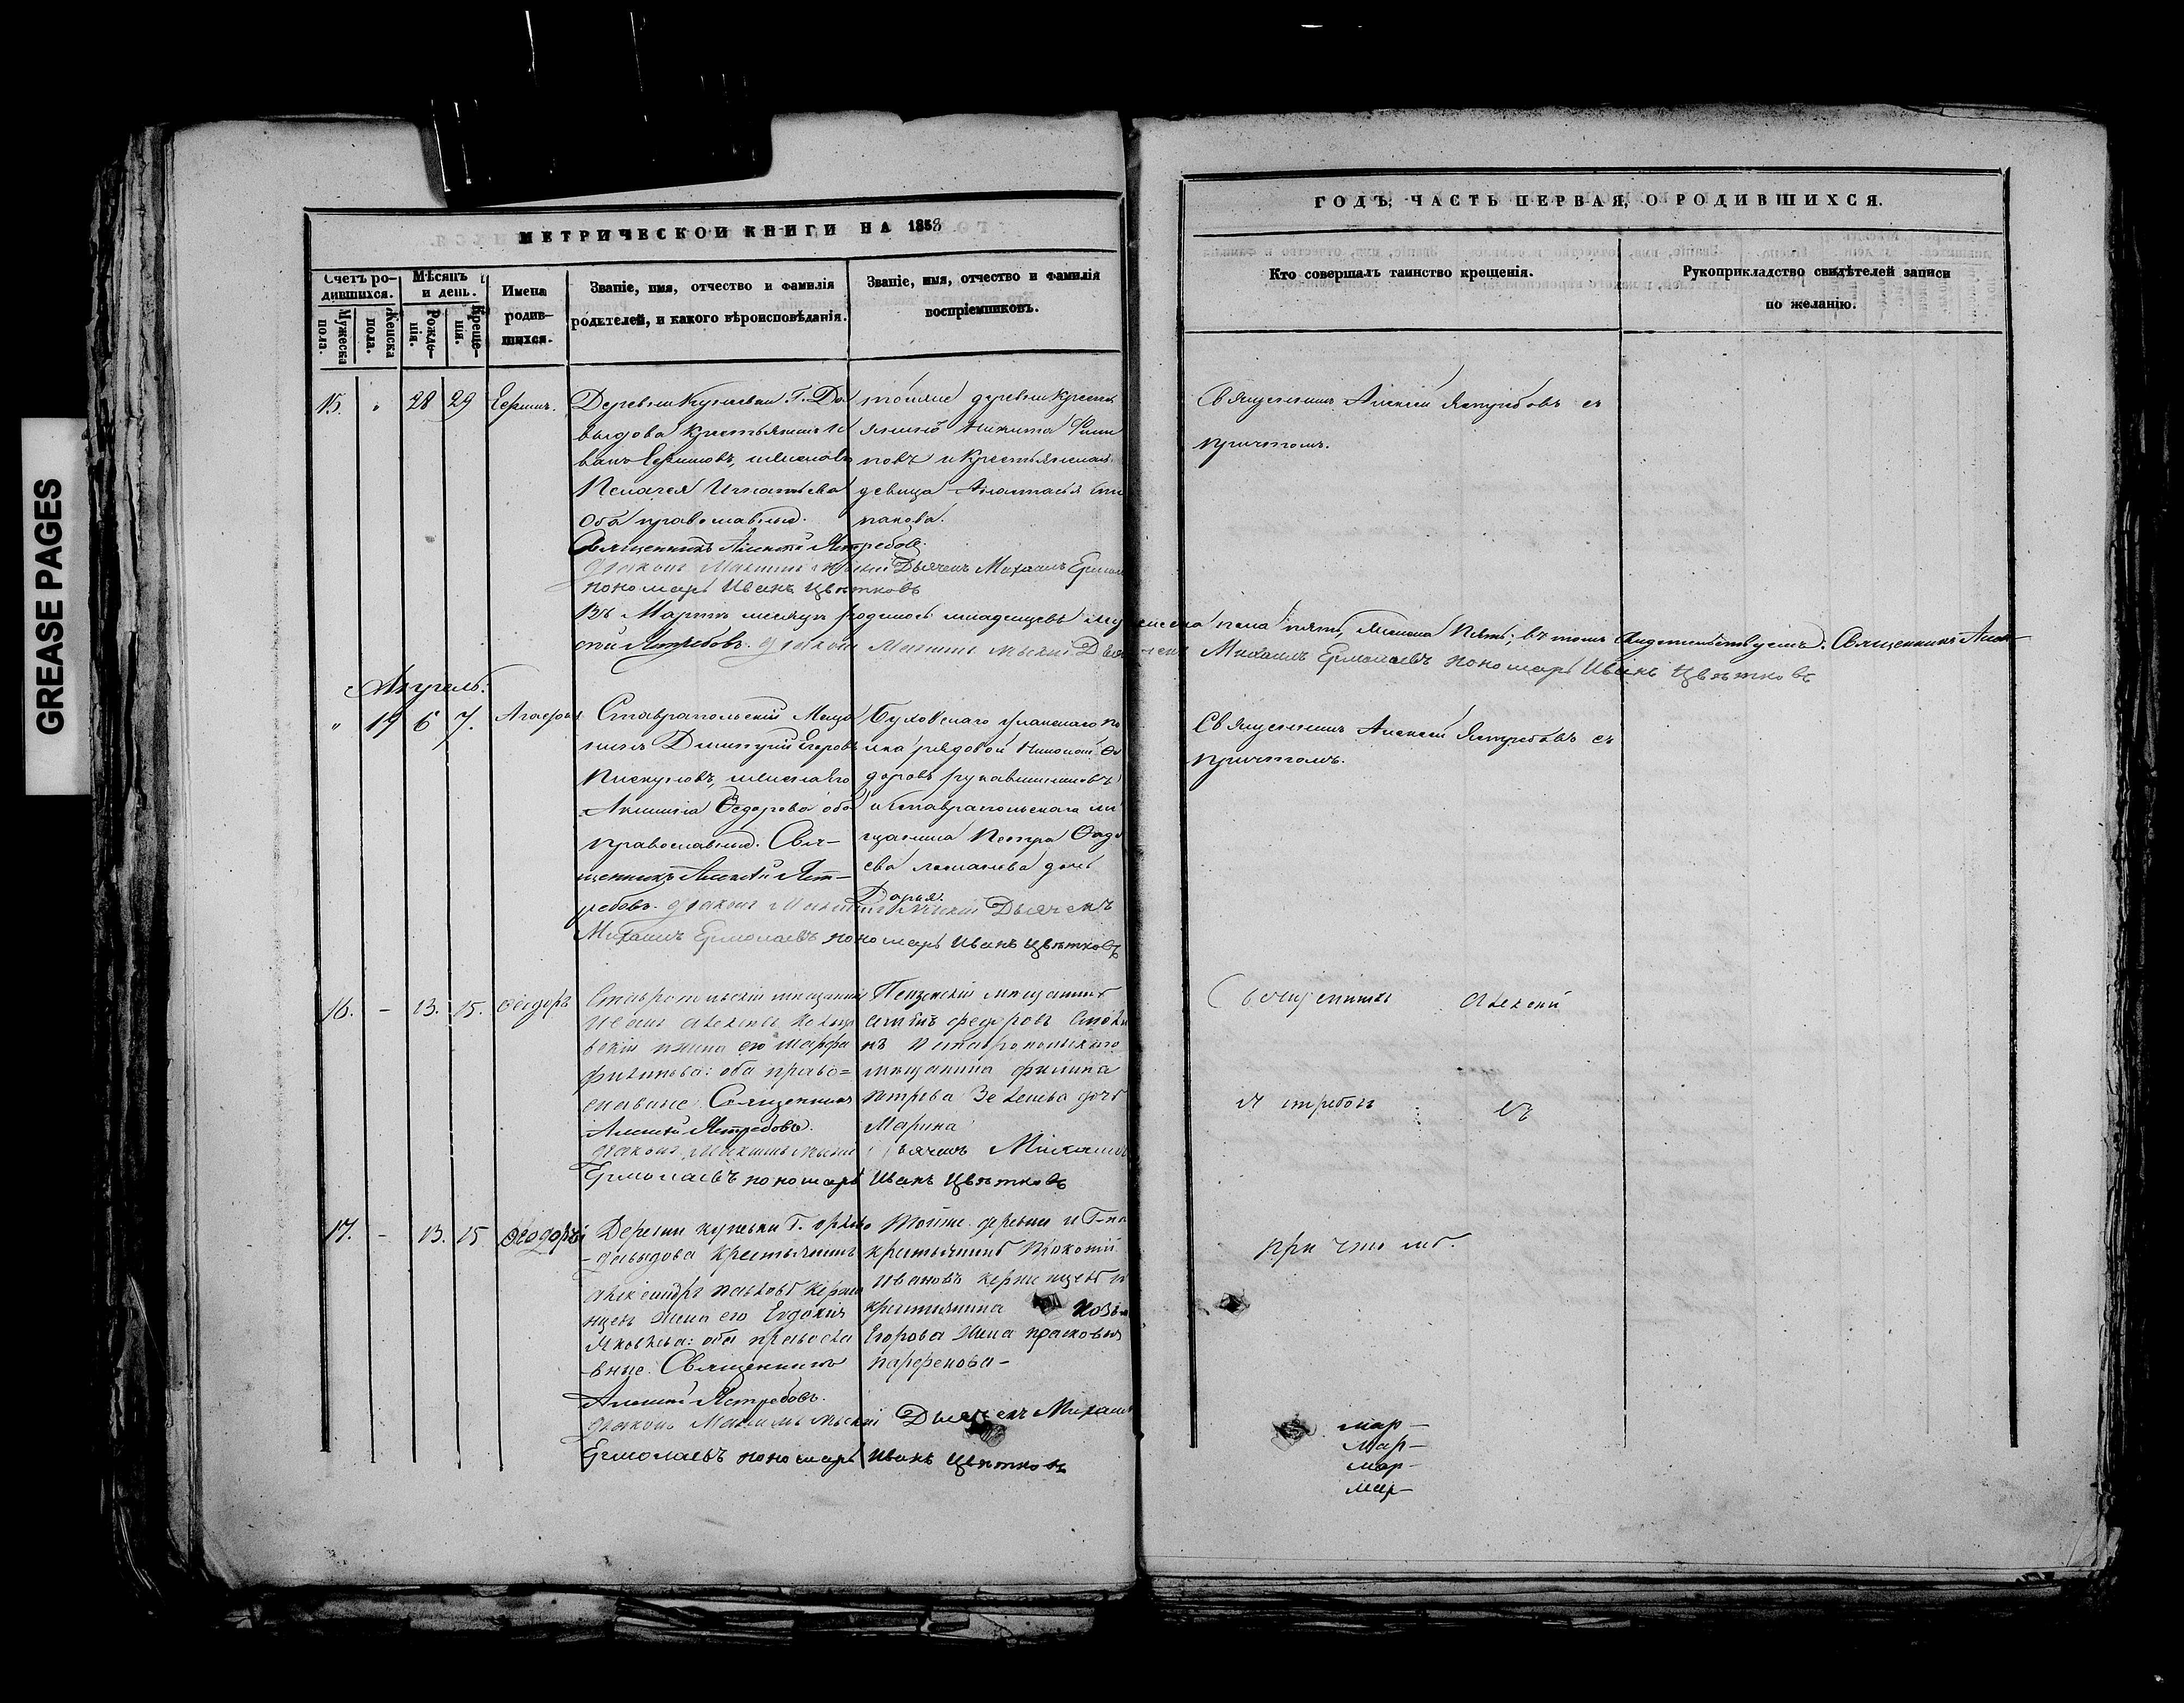 GREASE PAGES
МЕТРИЧЕСКОЙ КНИГИ НА 1858
ГОДЪ, ЧАСТЬ ПЕРВАЯ, О РОДИВШИХСЯ.
Счетъ ро-
дившихся.
Мужеска
пола.
Женска
пола.
Мѣсяцъ
и день.
Рожде-
нія.
Креще-
нія.
Имена
родив-
шихся.
Званіе, имя, отчество и фамилія
родителей, и какого вѣроисповѣданія.
Званіе, имя, отчество и фамилія
воспріемниковъ.
Кто совершалъ таинство крещенія.
Рукоприкладство свидѣтелей записи
по желанію.
15. " 28 29
Деревни Кунеевки Г. Да
выдова крестьянинъ И
ванъ Ефимовъ, жена его
Пелагея Игнатьева
Оба православные.
Священникъ Алексій Ястребовъ.
Дьячекъ Михаилъ Ермол
пономарь Иванъ Цвѣтковъ
тойже деревни кресть
янинъ Никита Фили
повъ и крестьянская
девица Анастасья Сте
панова.
Священникъ Алексій Ястребовъ съ
причтомъ.
Въ Мартѣ месяцѣ родилось младенцевъ мужеска пола пять, женска пять; въ томъ свидетельствуемъ: Священникъ Алек-
сѣй Ястребовъ. Дьячекъ Михаилъ Ермолаевъ пономарь Иванъ Цвѣтковъ
Апрель.
" 19 6 7.
Ставрапольскій Меща
нинъ Димитрій Егоровъ
Пискуновъ, жена его
Федорова оба
православные. Свя-
щенникъ Алексѣй Яст-
ребовъ. Дьячекъ
Михаилъ Ермолаевъ пономарь Иванъ Цвѣтковъ
уланскаго по
лка рядовой Николай Фе
доровъ
и Ставрапольскаго ме
щанина Петра
дочь
Дарья.
Священникъ Алексій Ястребовъ съ
причтомъ.
16. - 13. 15. Феодоръ
Ставропольскій мещанинъ
Иванъ
жена его Марфа
Филипова: оба право=
славные. Священникъ
Алексѣй Ястребовъ.
Ермолаевъ пономарь Иванъ Цвѣтковъ
Пензенскій мещанинъ
федоровъ
и Ставропольскаго
мещанина филипа
петрова дочь
Марина
Дьячекъ Михаилъ
Священникъ Алексий
Ястребовъ съ
17. - 13. 15 Феодоръ
Деревни кунеевки Г.
-давыдова крестьянинъ
александръ павловъ
жена его Евдокия
Яковлева: оба правосла
вные. Священникъ
Алексѣй Ястребовъ.
Дьячекъ Михаилъ
Ермолаевъ пономарь Иванъ Цвѣтковъ
Тойже деревни и Г-на
крестьянинъ
Ивановъ и
крестьянина
Егорова жена прасковья
парфенова-
причтомъ.
мар-
мар-
мар-
мар-